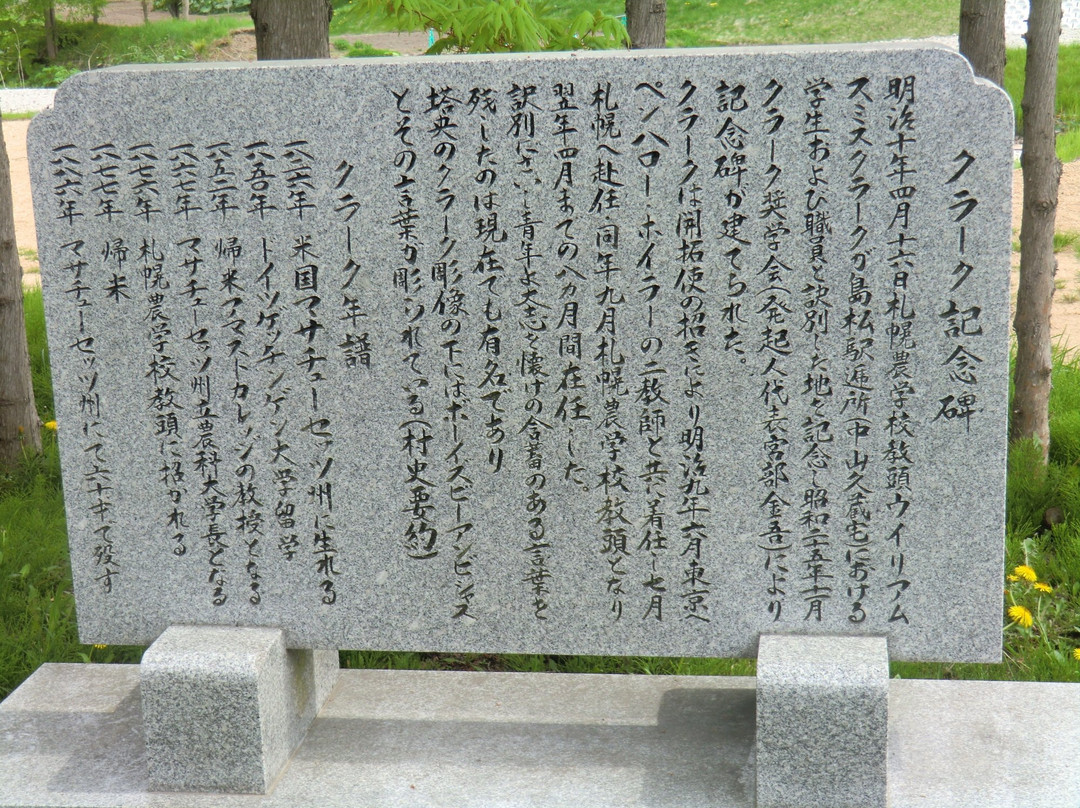 クラーク記念碑
明治十年四月十六日札幌農学校教頭ウイリアム
スミスクラークが島松駅逓所中山久蔵宅における
学生および職員と訣別した地を記念し昭和二十五年十一月
クラーク奨学会(発起人代表宮部金吾)により
記念碑が建てられた。
クラークは開拓使の招きにより明治九年六月東京へ
ペンハロー・ホイラーの二教師と共に着任し七月
札幌へ赴任・同年九月札幌農学校教頭となり
翌年四月までの八カ月間在任した。
訳別にさいし青年よ大志を懐けの含蓄のある言葉を
残したのは現在でも有名であり
塔央のクラーク彫像の下にはボーイズビーアンビシャス
とその言葉が彫られている(村史要約)
クラーク年譜
一八二六年 米国マサチューセッツ州に生れる
一八五〇年 ドイツゲッチンゲン大学留学
一八五二年 帰米アマストカレッジの教授となる
一八六七年 マサチューセッツ州立農科大学長となる
一八七六年 札幌農学校教頭に招かれる
一八七七年 帰米
一八八六年 マサチューセッツ州にて六十才で殁す